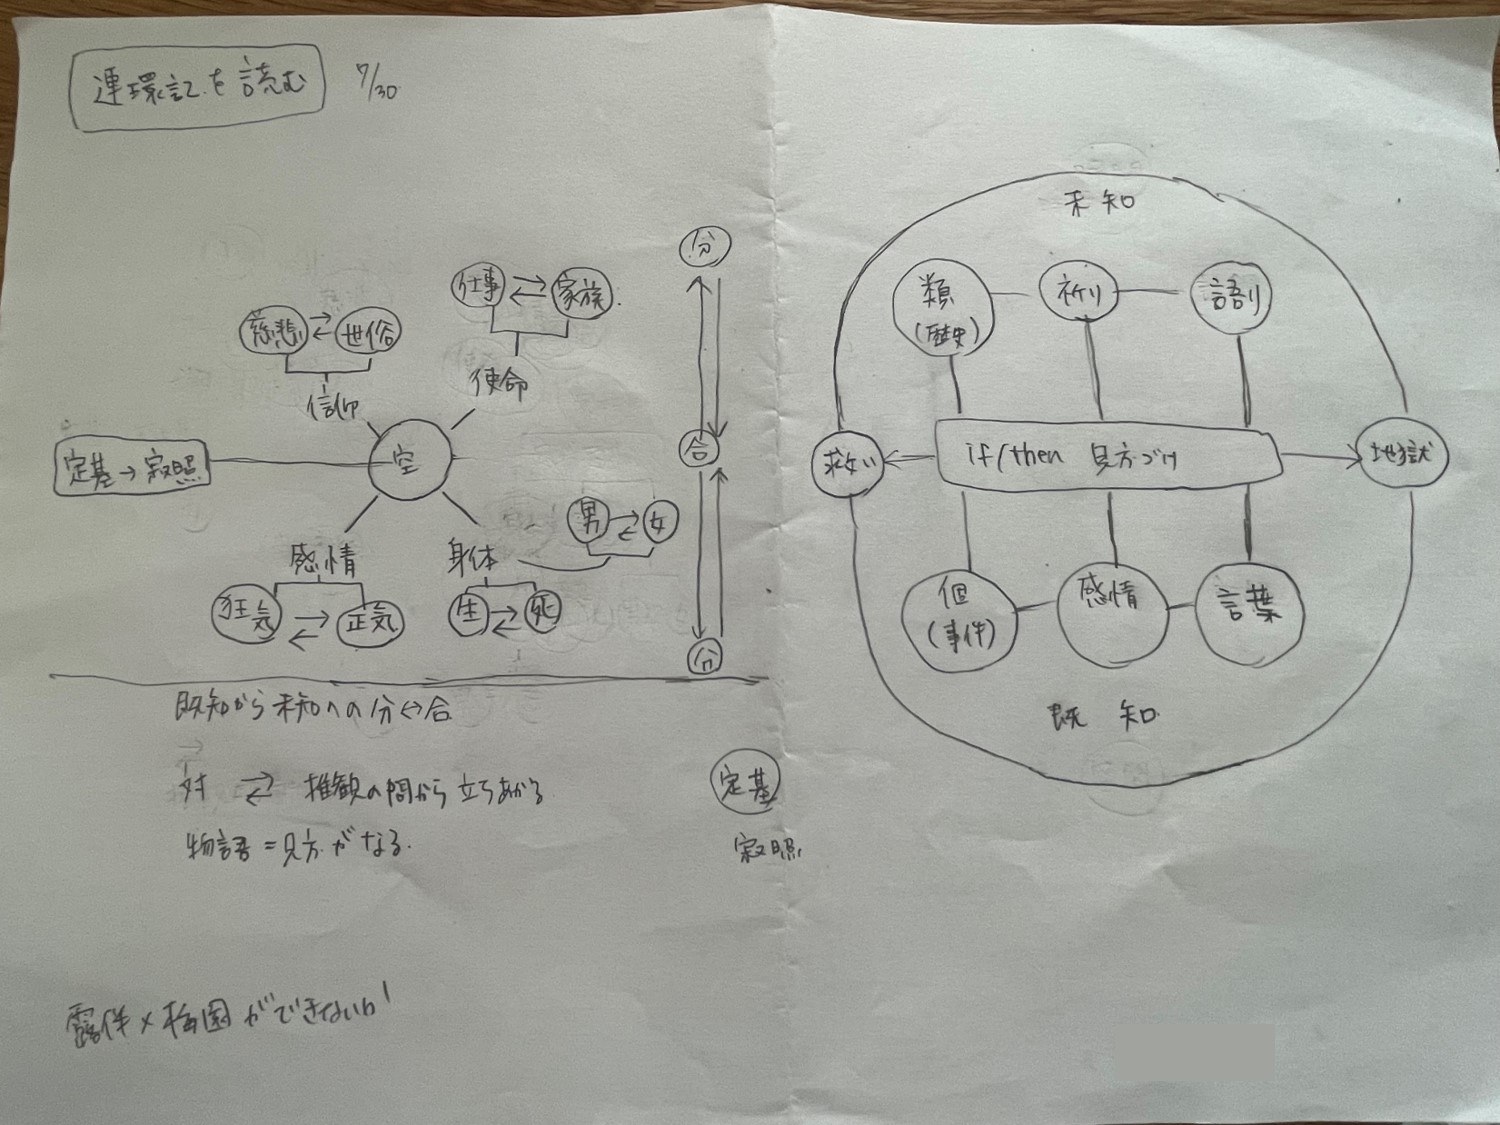 連環記を読む 7/30
慈悲 世俗
信仰
仕事 家族
使命
定基→寂照
空
感情
狂気 正気
身体
生 死
男 女
分
合
分
既知から未知への分↔合
対 ⇄ 推観の間から立ちあがる
物語=見方がなる.
定基
寂照
露伴×梅園ができないか!
未知
類
(歴史)
祈り
語り
救い
if/then 見方づけ
地獄
個
(事件)
感情
言葉
既知